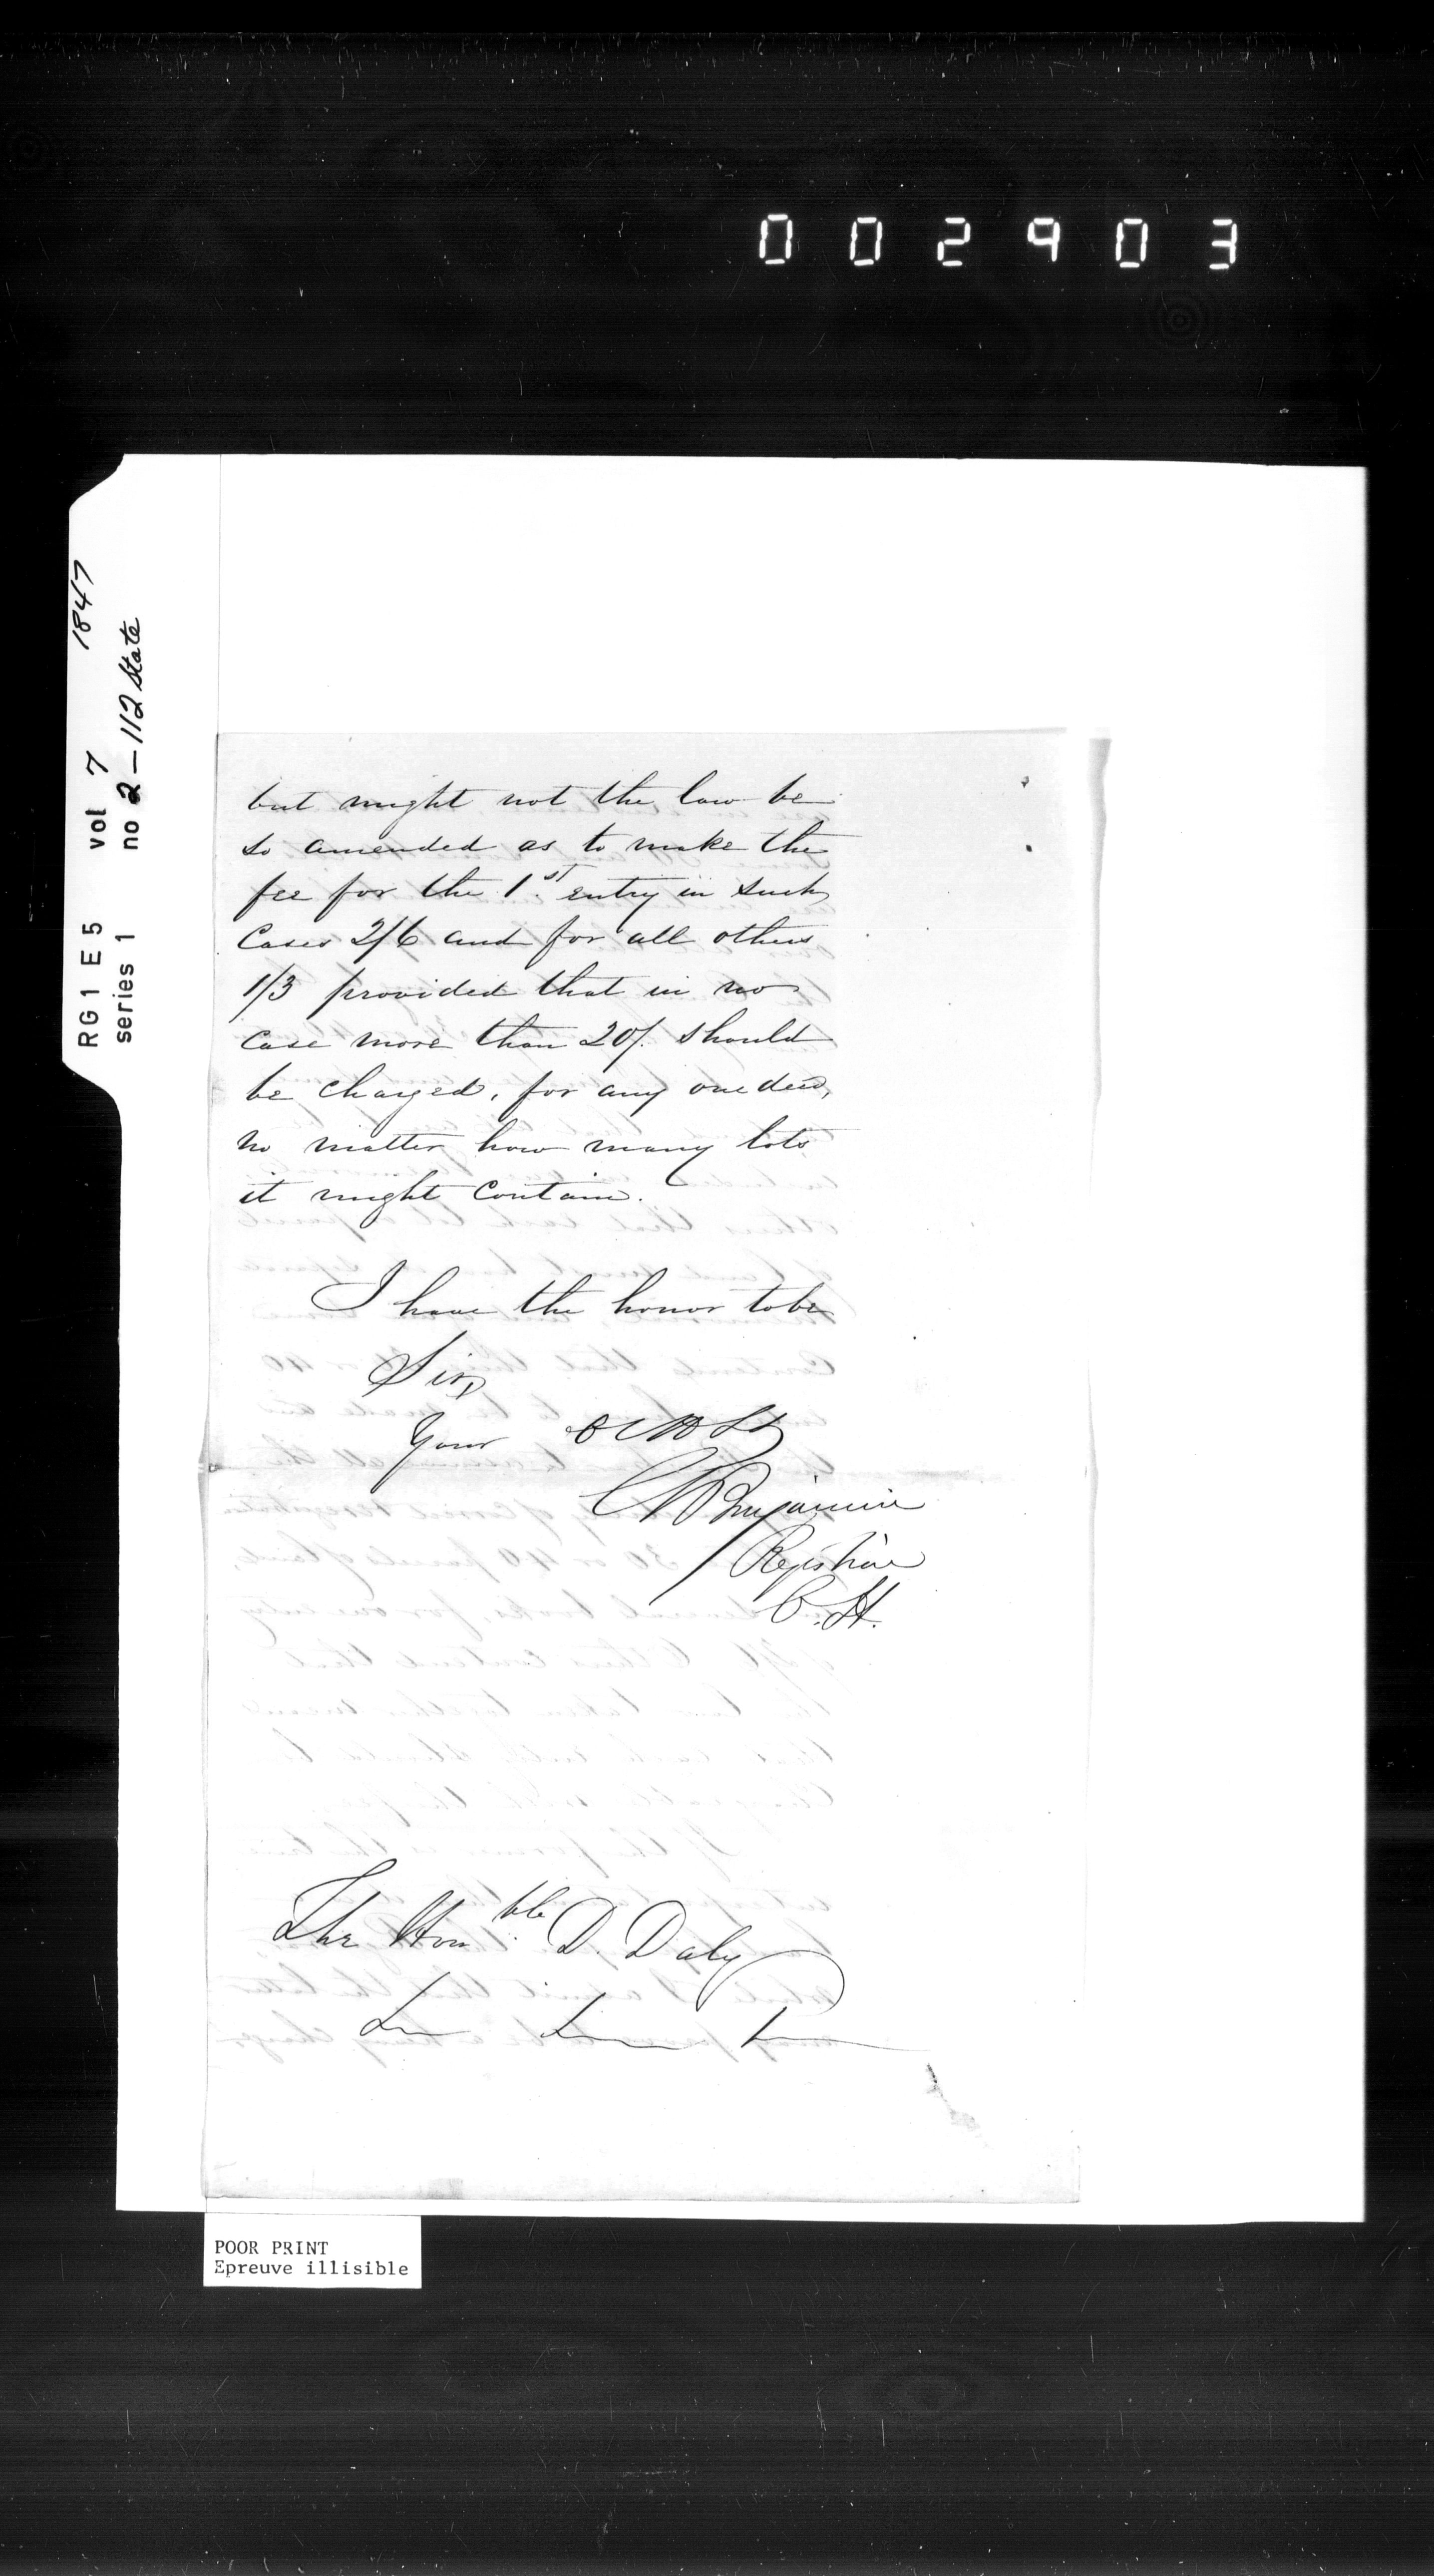 002903
RG1 E5 vol 7 1847
series 1 no 2-112 State
but might not the law be
so amended as to make the
fee for the 1st entry in such
Cases 2/6 and for all others
1/3 provided that in no
case more than 20/. should
be charged, for any one deed,
no matter how many lots
it might contain.
I have the honor to be
Sir,
Your
Benjamin
Registrar
C. H.
The Honble D. Daly
POOR PRINT
Epreuve illisible